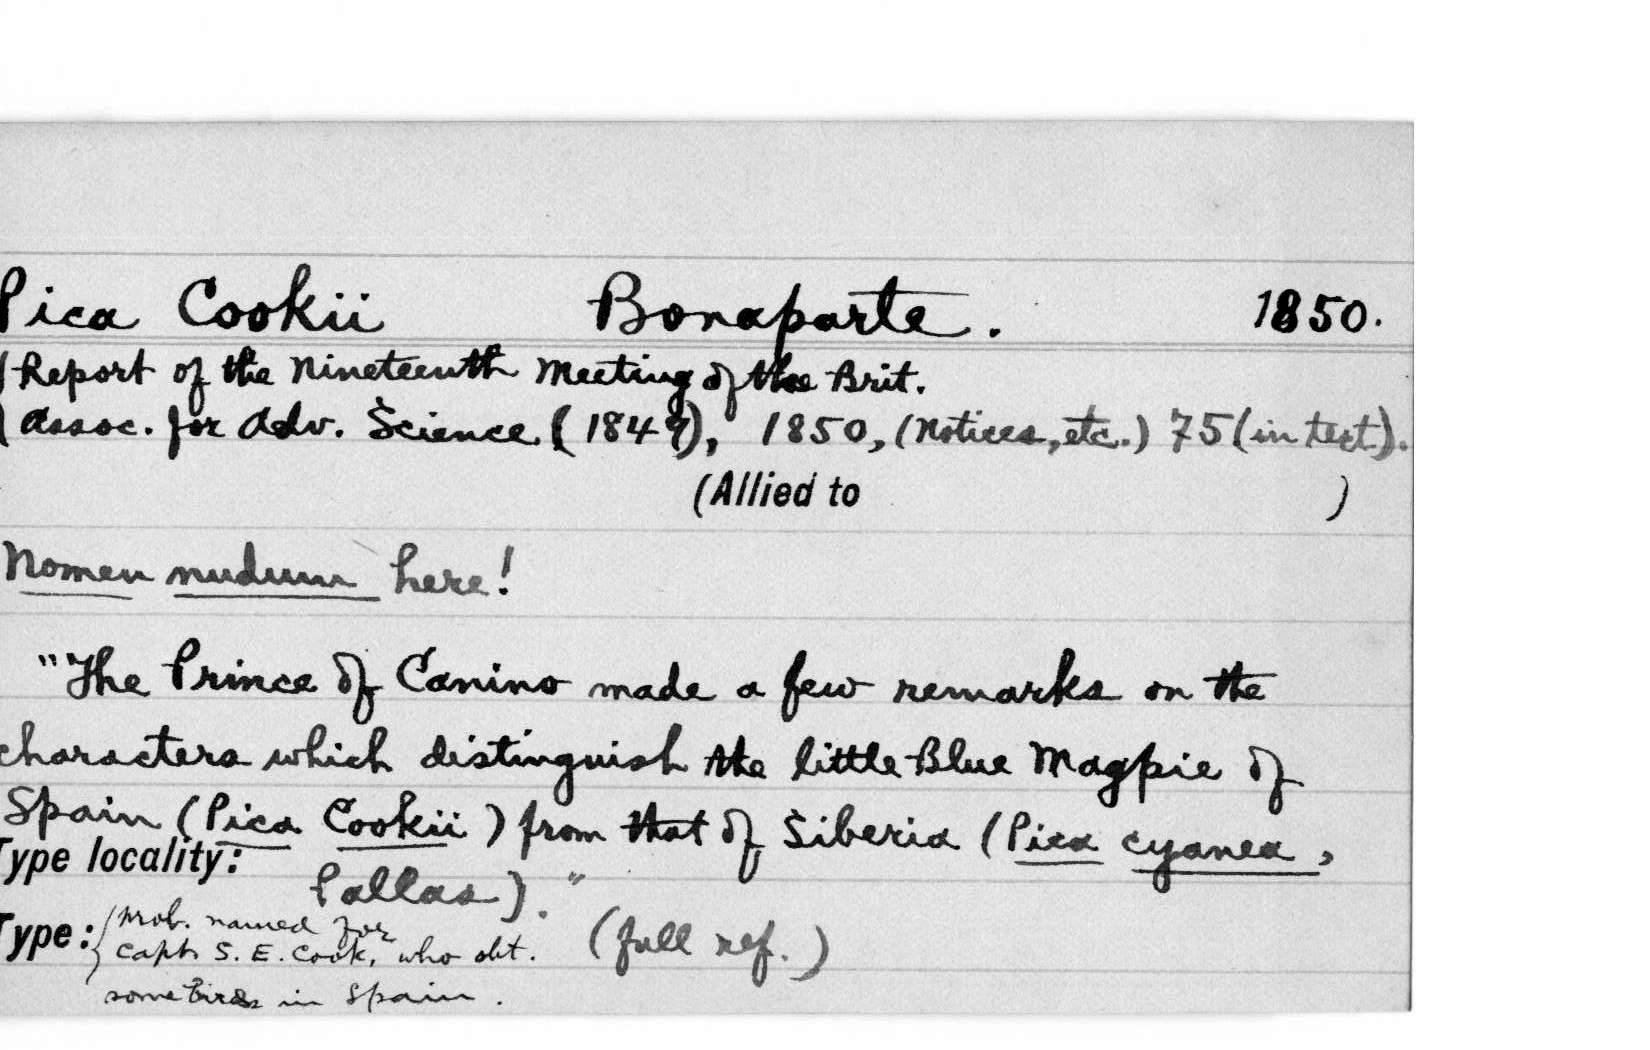 Pica Cookii Bonaparte. 1850.
(Report of the Nineteenth Meeting of the Brit.
(Assoc. for Adv. Science (1849), 1850, (Notices, etc.) 75 (in text).
(Allied to )
Nomen nudum here!
"The Prince of Canino made a few remarks on the
characters which distinguish the little Blue Magpie of
Spain (Pica Cookii) from that of Siberia (Pica cyanea,
Type locality:
Pallas)."
Type: { prob. named for
Capt. S. E. Cook, who obt. (full ref.)
some birds in Spain.